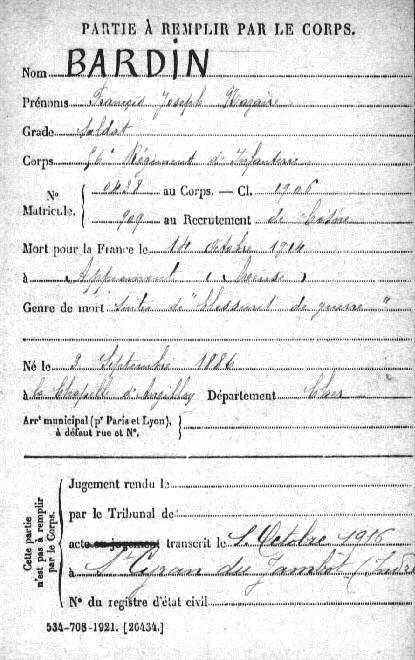 PARTIE À REMPLIR PAR LE CORPS.
Nom BARDIN
Prénoms François Joseph
Grade Soldat
Corps 56e Régiment d'Infanterie
No Matricule. { 0428 au Corps. — Cl. 1906
909 au Recrutement de Cosne
Mort pour la France le 14 octobre 1914
à Apremont (Meuse)
Genre de mort suites de "blessures de guerre"
Né le 2 Septembre 1886
à la Chapelle d'Angillon Département Cher
Arrt municipal (pr Paris et Lyon), à défaut rue et No. }
Cette partie n'est pas à remplir par le Corps.
Jugement rendu le
par le Tribunal de
acte ou jugement transcrit le 1 Octobre 1916
à St Cyran du Jambot (Indre
No du registre d'état civil
534-708-1921. [26434.]